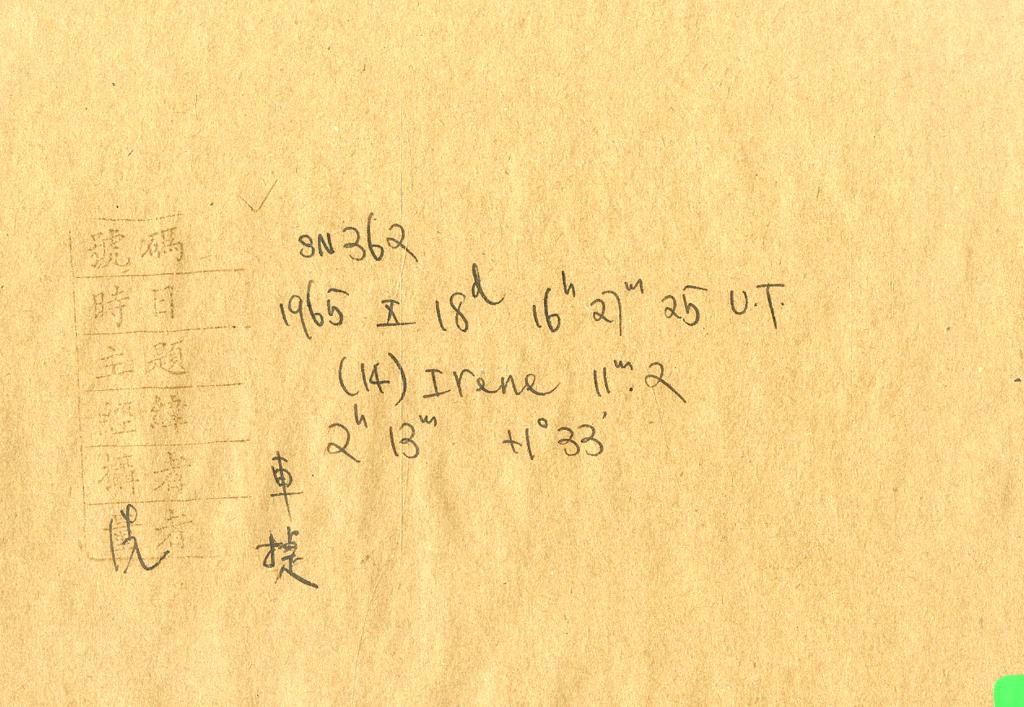 號碼 SN362
時日 1965 X 18ᵈ 16ʰ 27ᵐ 25 U.T.
主題 (14) Irene 11ᵐ.2
經緯 2ʰ 13ᵐ +1°33'
攝者 車
者 捷